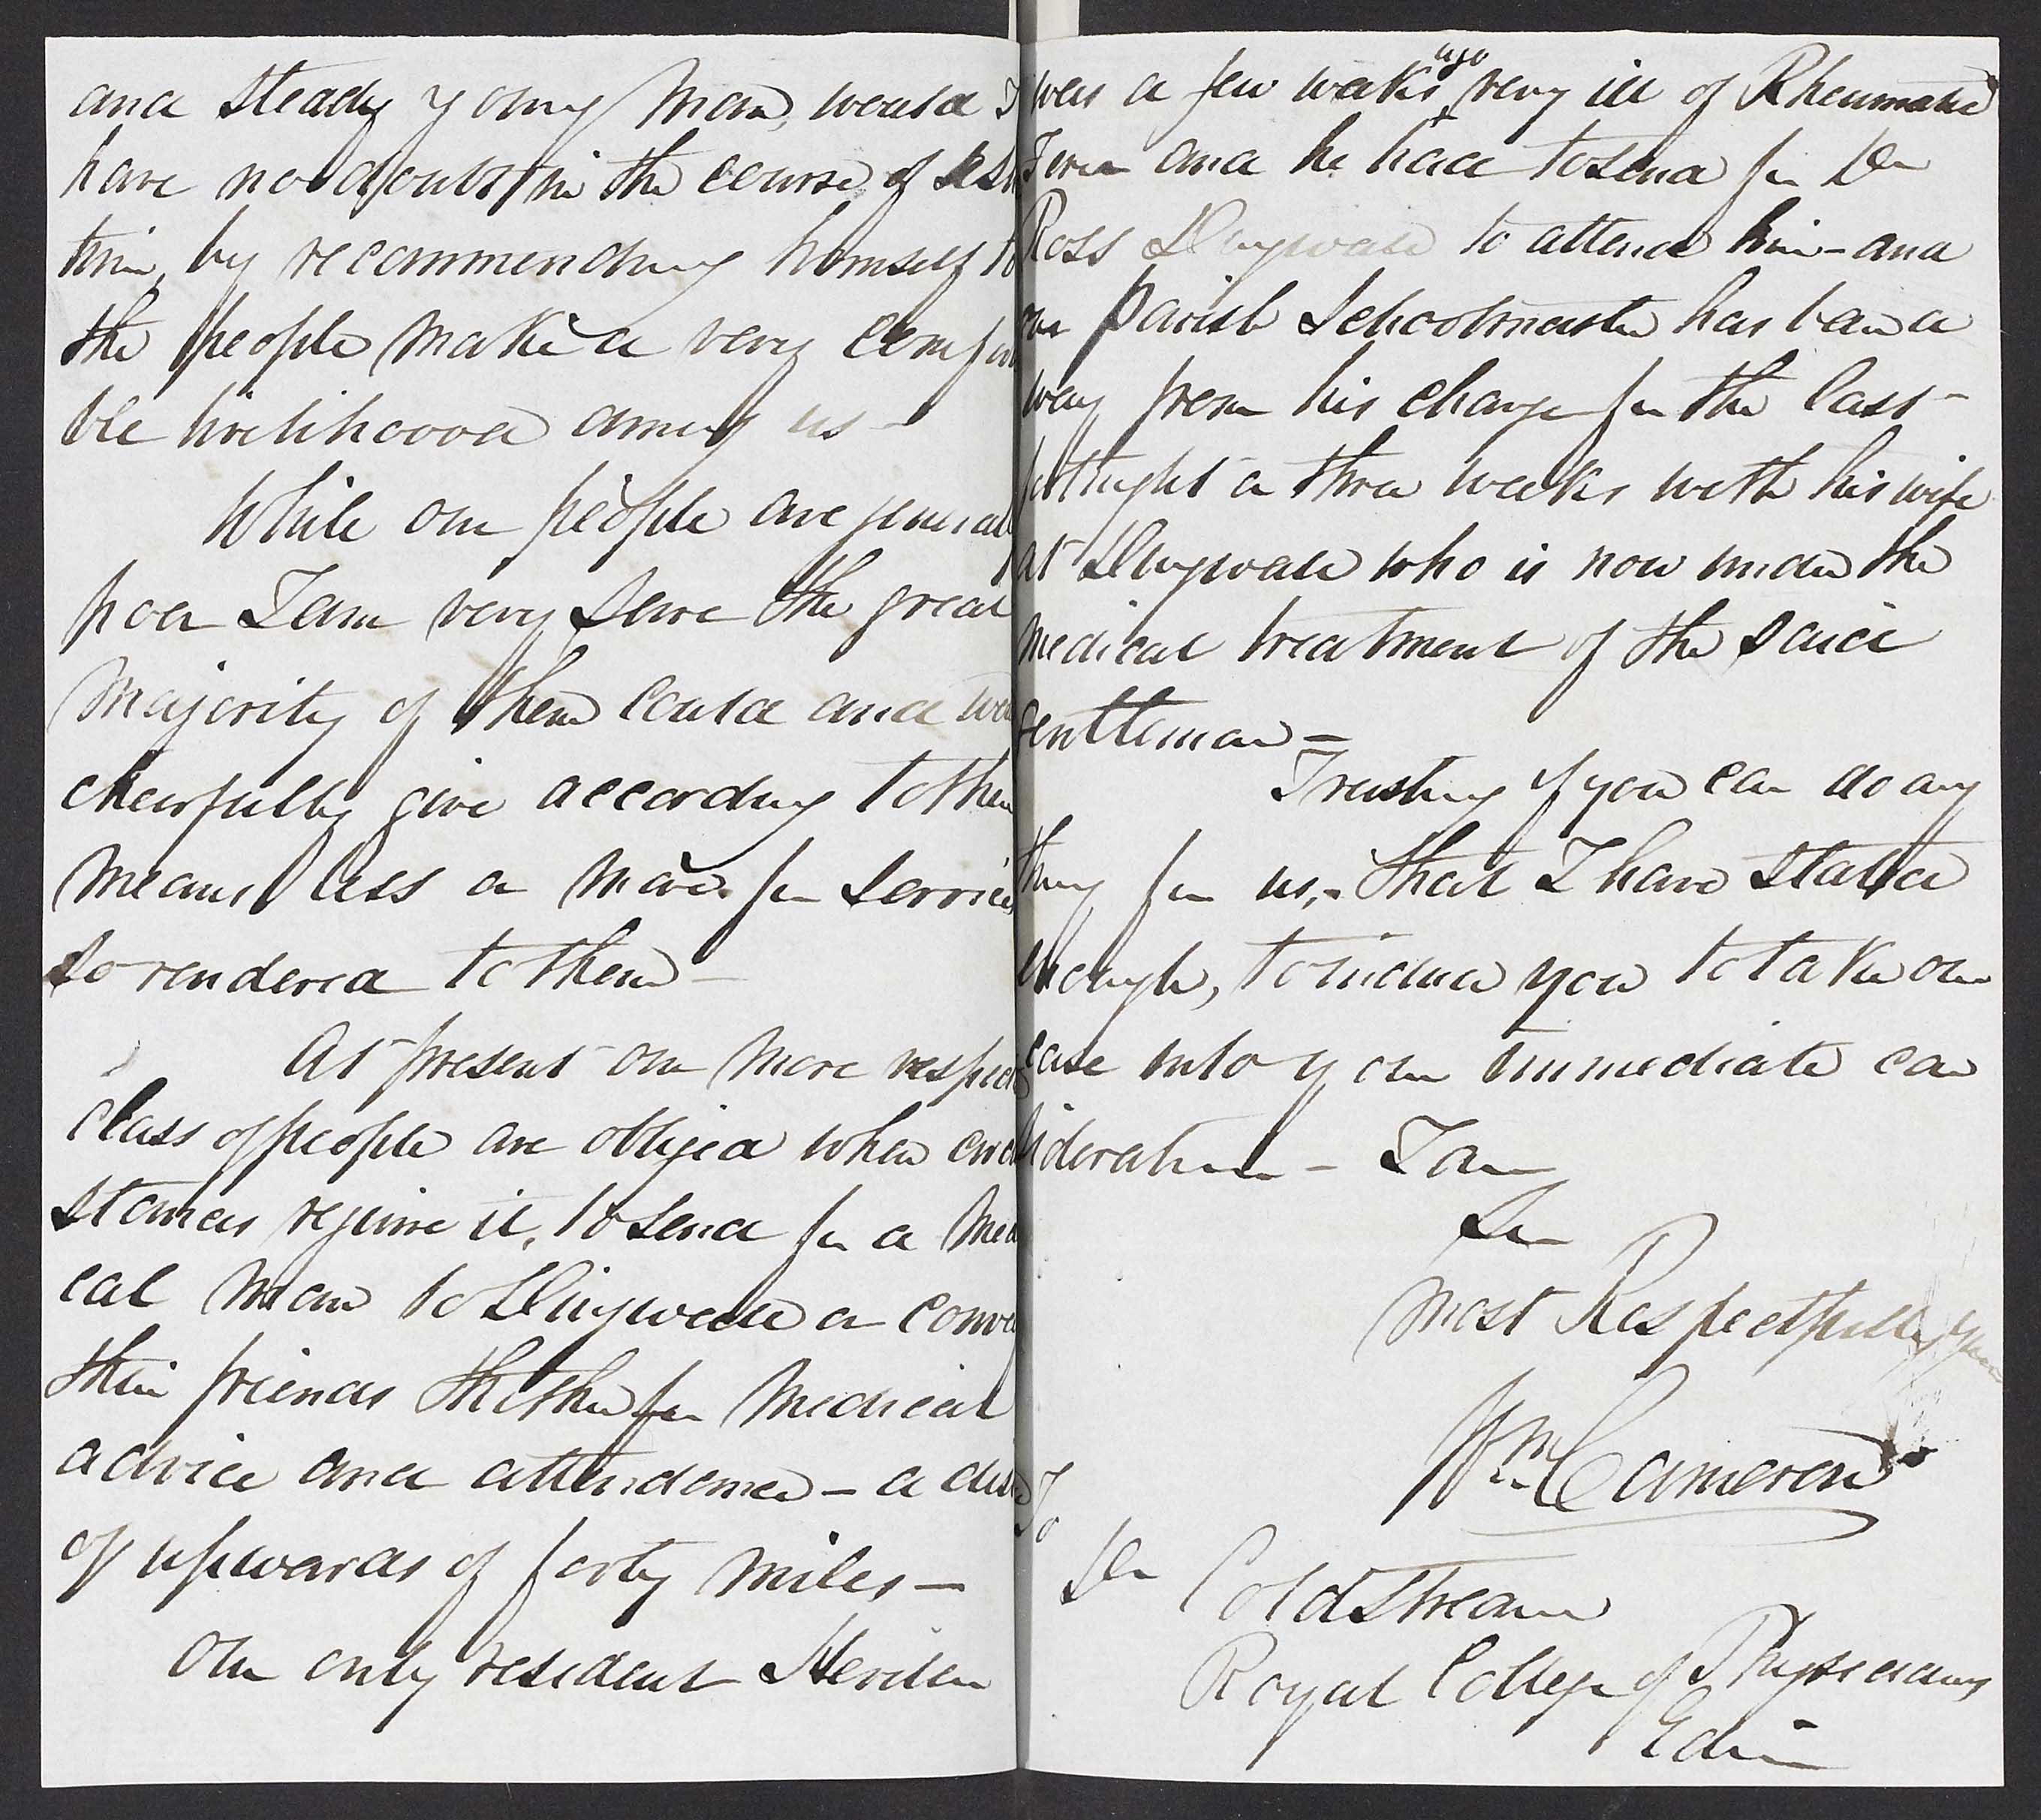 and steady young man, would I
have no doubt, in the course of
time, by recommending himself to
the people make a very comfor
ble livelihood among us -
While our people are general
poor I am very sure the great
Majority of them could and wou
cheerfully give according to their
means less or more for service
so rendered to them -
At present our more respec
class of people are obliged when circ
stances require it, to send for a Med
cal Man to Dingwall or conve
their friends thither for Medical
advice and attendance - a dis
of upwards of forty miles -
Our only resident Heritor
was a few weeks ago very ill of Rheumatic
Fever and he had to send for Dr
Ross Dingwall to attend him - and
our Parish Schoolmaster has been a
way from his charge for the last
fortnight or three weeks with his wife
at Dingwall who is now under the
medical treatment of the said
gentleman -
Trusting if you can do any
thing for us, - that I have stated
enough, to induce you to take our
case into your immediate con
sideration - I am
Sir
Most Respectfully yours
Wm. Cameron
To
Dr Coldstream
Royal College of Physicians
Edin